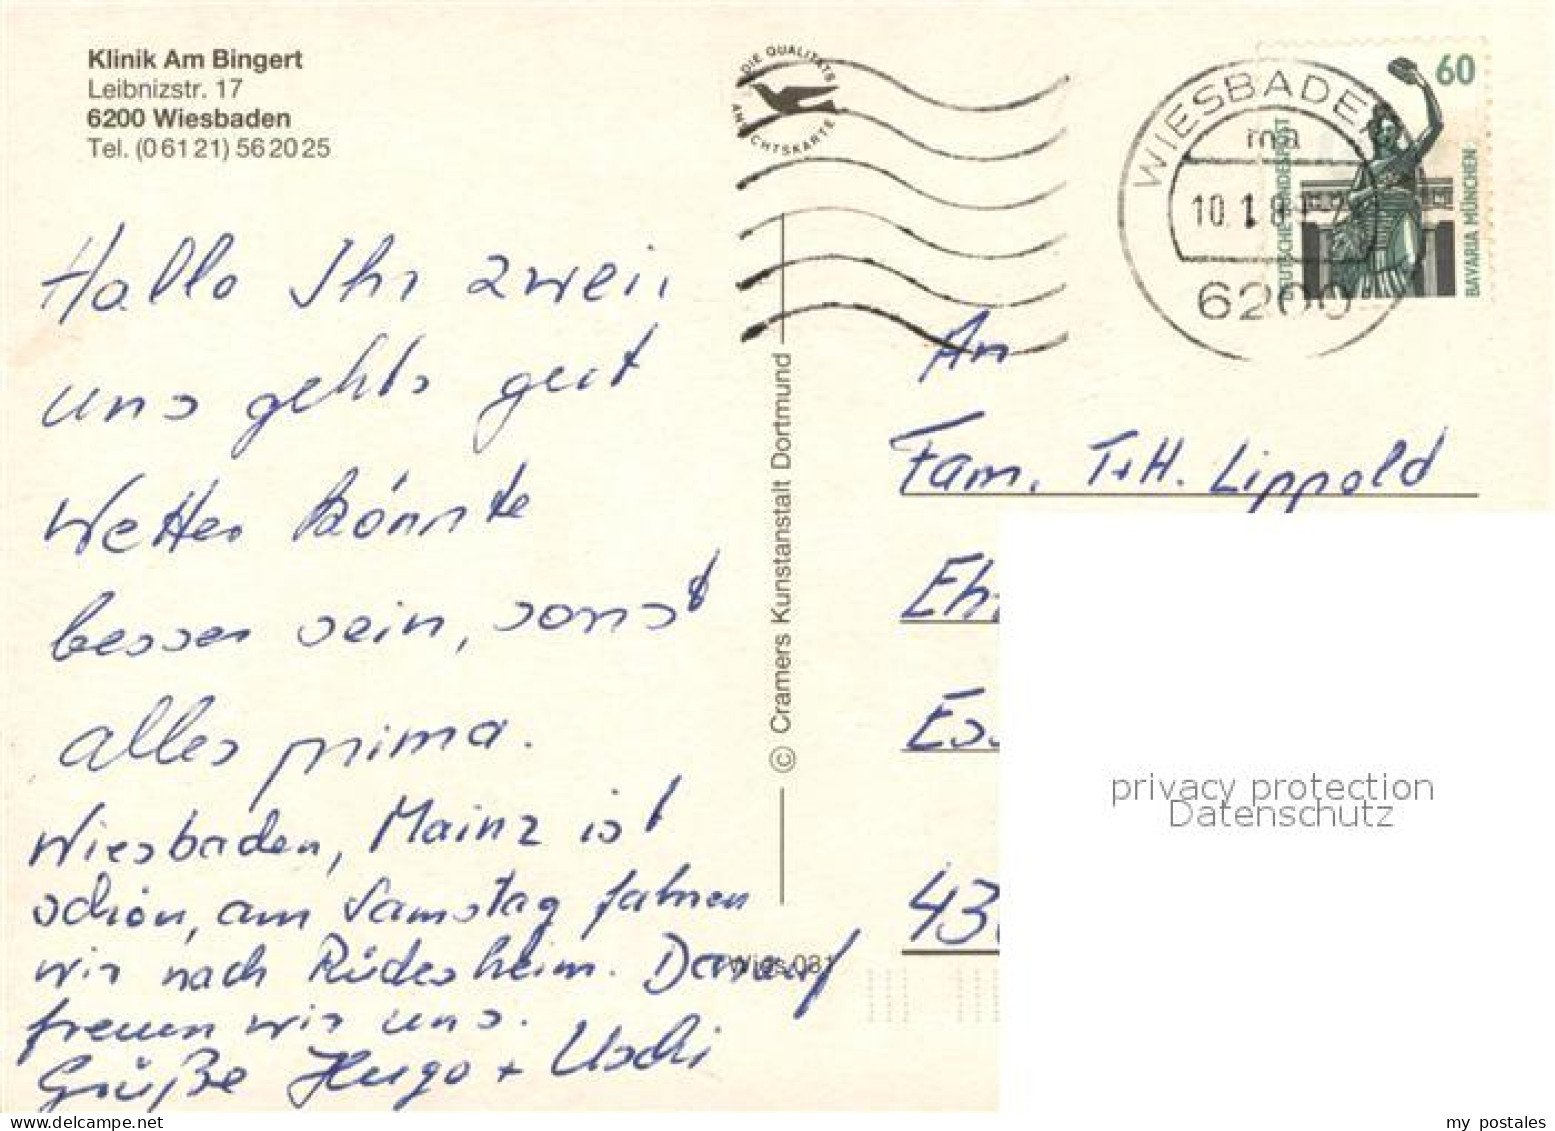 Klinik Am Bingert
Leibnizstr. 17
6200 Wiesbaden
Tel. (0 61 21) 56 20 25
Hallo Ihr zwei,
uns gehts gut
Wetter könnte
besser sein, sonst
alles prima.
Wiesbaden, Mainz ist
schön, am Samstag fahren
wir nach Rüdesheim. Darauf
freuen wir uns.
Grüße Hugo + Uschi
DIE QUALITÄTS
ANSICHTSKARTE
© Cramers Kunstanstalt Dortmund
Wies 031
WIESBADEN
ma
10.1.8
6200
60
DEUTSCHE BUNDESPOST
BAVARIA MÜNCHEN
An
Fam. T+H. Lippold
Eh
Ess
43
privacy protection
Datenschutz
my postales